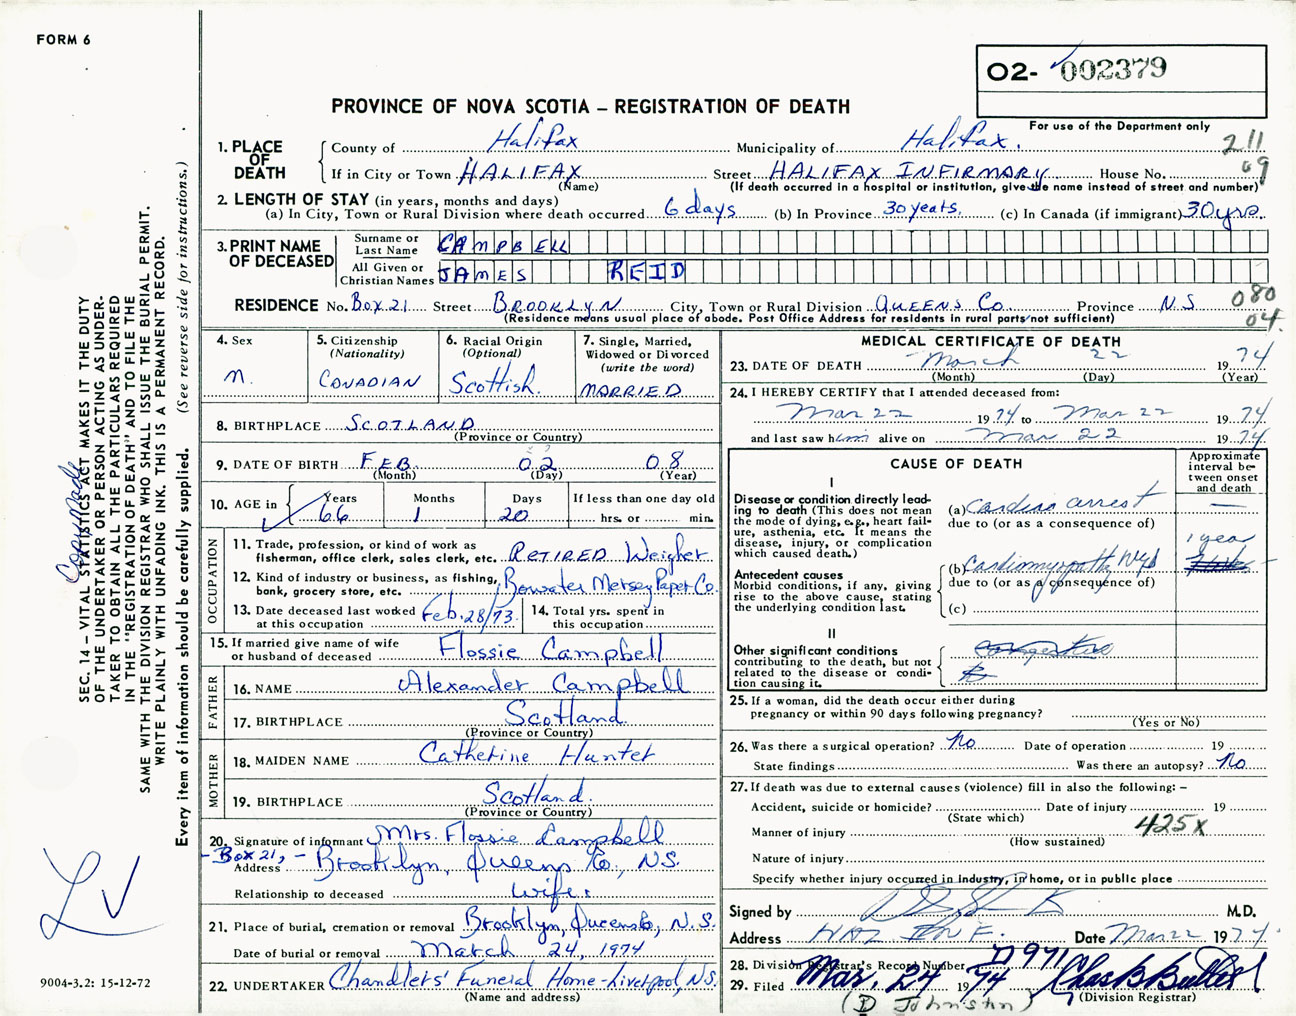 FORM 6
02- 002379
PROVINCE OF NOVA SCOTIA – REGISTRATION OF DEATH
For use of the Department only
1. PLACE OF DEATH
County of Halifax Municipality of Halifax. 211
If in City or Town HALIFAX Street HALIFAX INFIRMARY House No. 09
(Name) (If death occurred in a hospital or institution, give the name instead of street and number)
2. LENGTH OF STAY (in years, months and days)
(a) In City, Town or Rural Division where death occurred 6 days (b) In Province 30 years. (c) In Canada (if immigrant) 30 yrs.
3. PRINT NAME OF DECEASED
Surname or Last Name CAMPBELL
All Given or Christian Names JAMES REID
RESIDENCE No. Box 21 Street BROOKLYN City, Town or Rural Division QUEENS Co. Province N.S 080
(Residence means usual place of abode. Post Office Address for residents in rural parts not sufficient) 04.
4. Sex M.
5. Citizenship (Nationality) CANADIAN
6. Racial Origin (Optional) Scottish.
7. Single, Married, Widowed or Divorced (write the word) MARRIED
8. BIRTHPLACE SCOTLAND
(Province or Country)
9. DATE OF BIRTH FEB 02 08
(Month) (Day) (Year)
10. AGE in Years 66 Months 1 Days 20 If less than one day old hrs. or min.
OCCUPATION
11. Trade, profession, or kind of work as fisherman, office clerk, sales clerk, etc. RETIRED Weigher
12. Kind of industry or business, as fishing, bank, grocery store, etc. Bowater Mersey Paper Co.
13. Date deceased last worked at this occupation Feb. 28/73
14. Total yrs. spent in this occupation
15. If married give name of wife or husband of deceased Flossie Campbell
FATHER
16. NAME Alexander Campbell
17. BIRTHPLACE Scotland.
(Province or Country)
MOTHER
18. MAIDEN NAME Catherine Hunter
19. BIRTHPLACE Scotland.
(Province or Country)
20. Signature of informant Mrs. Flossie Campbell
Address - Box 21, - Brooklyn, Queens Co., N.S.
Relationship to deceased Wife.
21. Place of burial, cremation or removal Brooklyn, Queens Co, N.S.
Date of burial or removal March 24, 1974
22. UNDERTAKER Chandlers' Funeral Home-Liverpool, N.S.
(Name and address)
MEDICAL CERTIFICATE OF DEATH
23. DATE OF DEATH March 22 1974
(Month) (Day) (Year)
24. I HEREBY CERTIFY that I attended deceased from:
Mar 22 1974 to Mar 22 1974
and last saw him alive on Mar 22 1974
CAUSE OF DEATH
Approximate interval between onset and death
I
Disease or condition directly leading to death (This does not mean the mode of dying, e.g., heart failure, asthenia, etc. It means the disease, injury, or complication which caused death.)
(a) Cardiac arrest —
due to (or as a consequence of)
Antecedent causes
Morbid conditions, if any, giving rise to the above cause, stating the underlying condition last.
(b) Cardiomyopathy 1 year
due to (or as a consequence of)
(c)
II
Other significant conditions contributing to the death, but not related to the disease or condition causing it.
25. If a woman, did the death occur either during pregnancy or within 90 days following pregnancy?
(Yes or No)
26. Was there a surgical operation? No Date of operation 19
State findings Was there an autopsy? No
27. If death was due to external causes (violence) fill in also the following: –
Accident, suicide or homicide? Date of injury 19
(State which)
Manner of injury 425X
(How sustained)
Nature of injury
Specify whether injury occurred in industry, in home, or in public place
Signed by M.D.
Address HAL INF. Date Mar 22 1974.
28. Division Registrar's Record Number D971
29. Filed Mar. 24 1974 Chas B Butler
(Division Registrar)
(D Johnston)
SEC. 14 – VITAL STATISTICS ACT MAKES IT THE DUTY
OF THE UNDERTAKER OR PERSON ACTING AS UNDER-
TAKER TO OBTAIN ALL THE PARTICULARS REQUIRED
IN THE "REGISTRATION OF DEATH" AND TO FILE THE
SAME WITH THE DIVISION REGISTRAR WHO SHALL ISSUE THE BURIAL PERMIT.
WRITE PLAINLY WITH UNFADING INK. THIS IS A PERMANENT RECORD.
Every item of information should be carefully supplied. (See reverse side for instructions.)
9004-3.2: 15-12-72